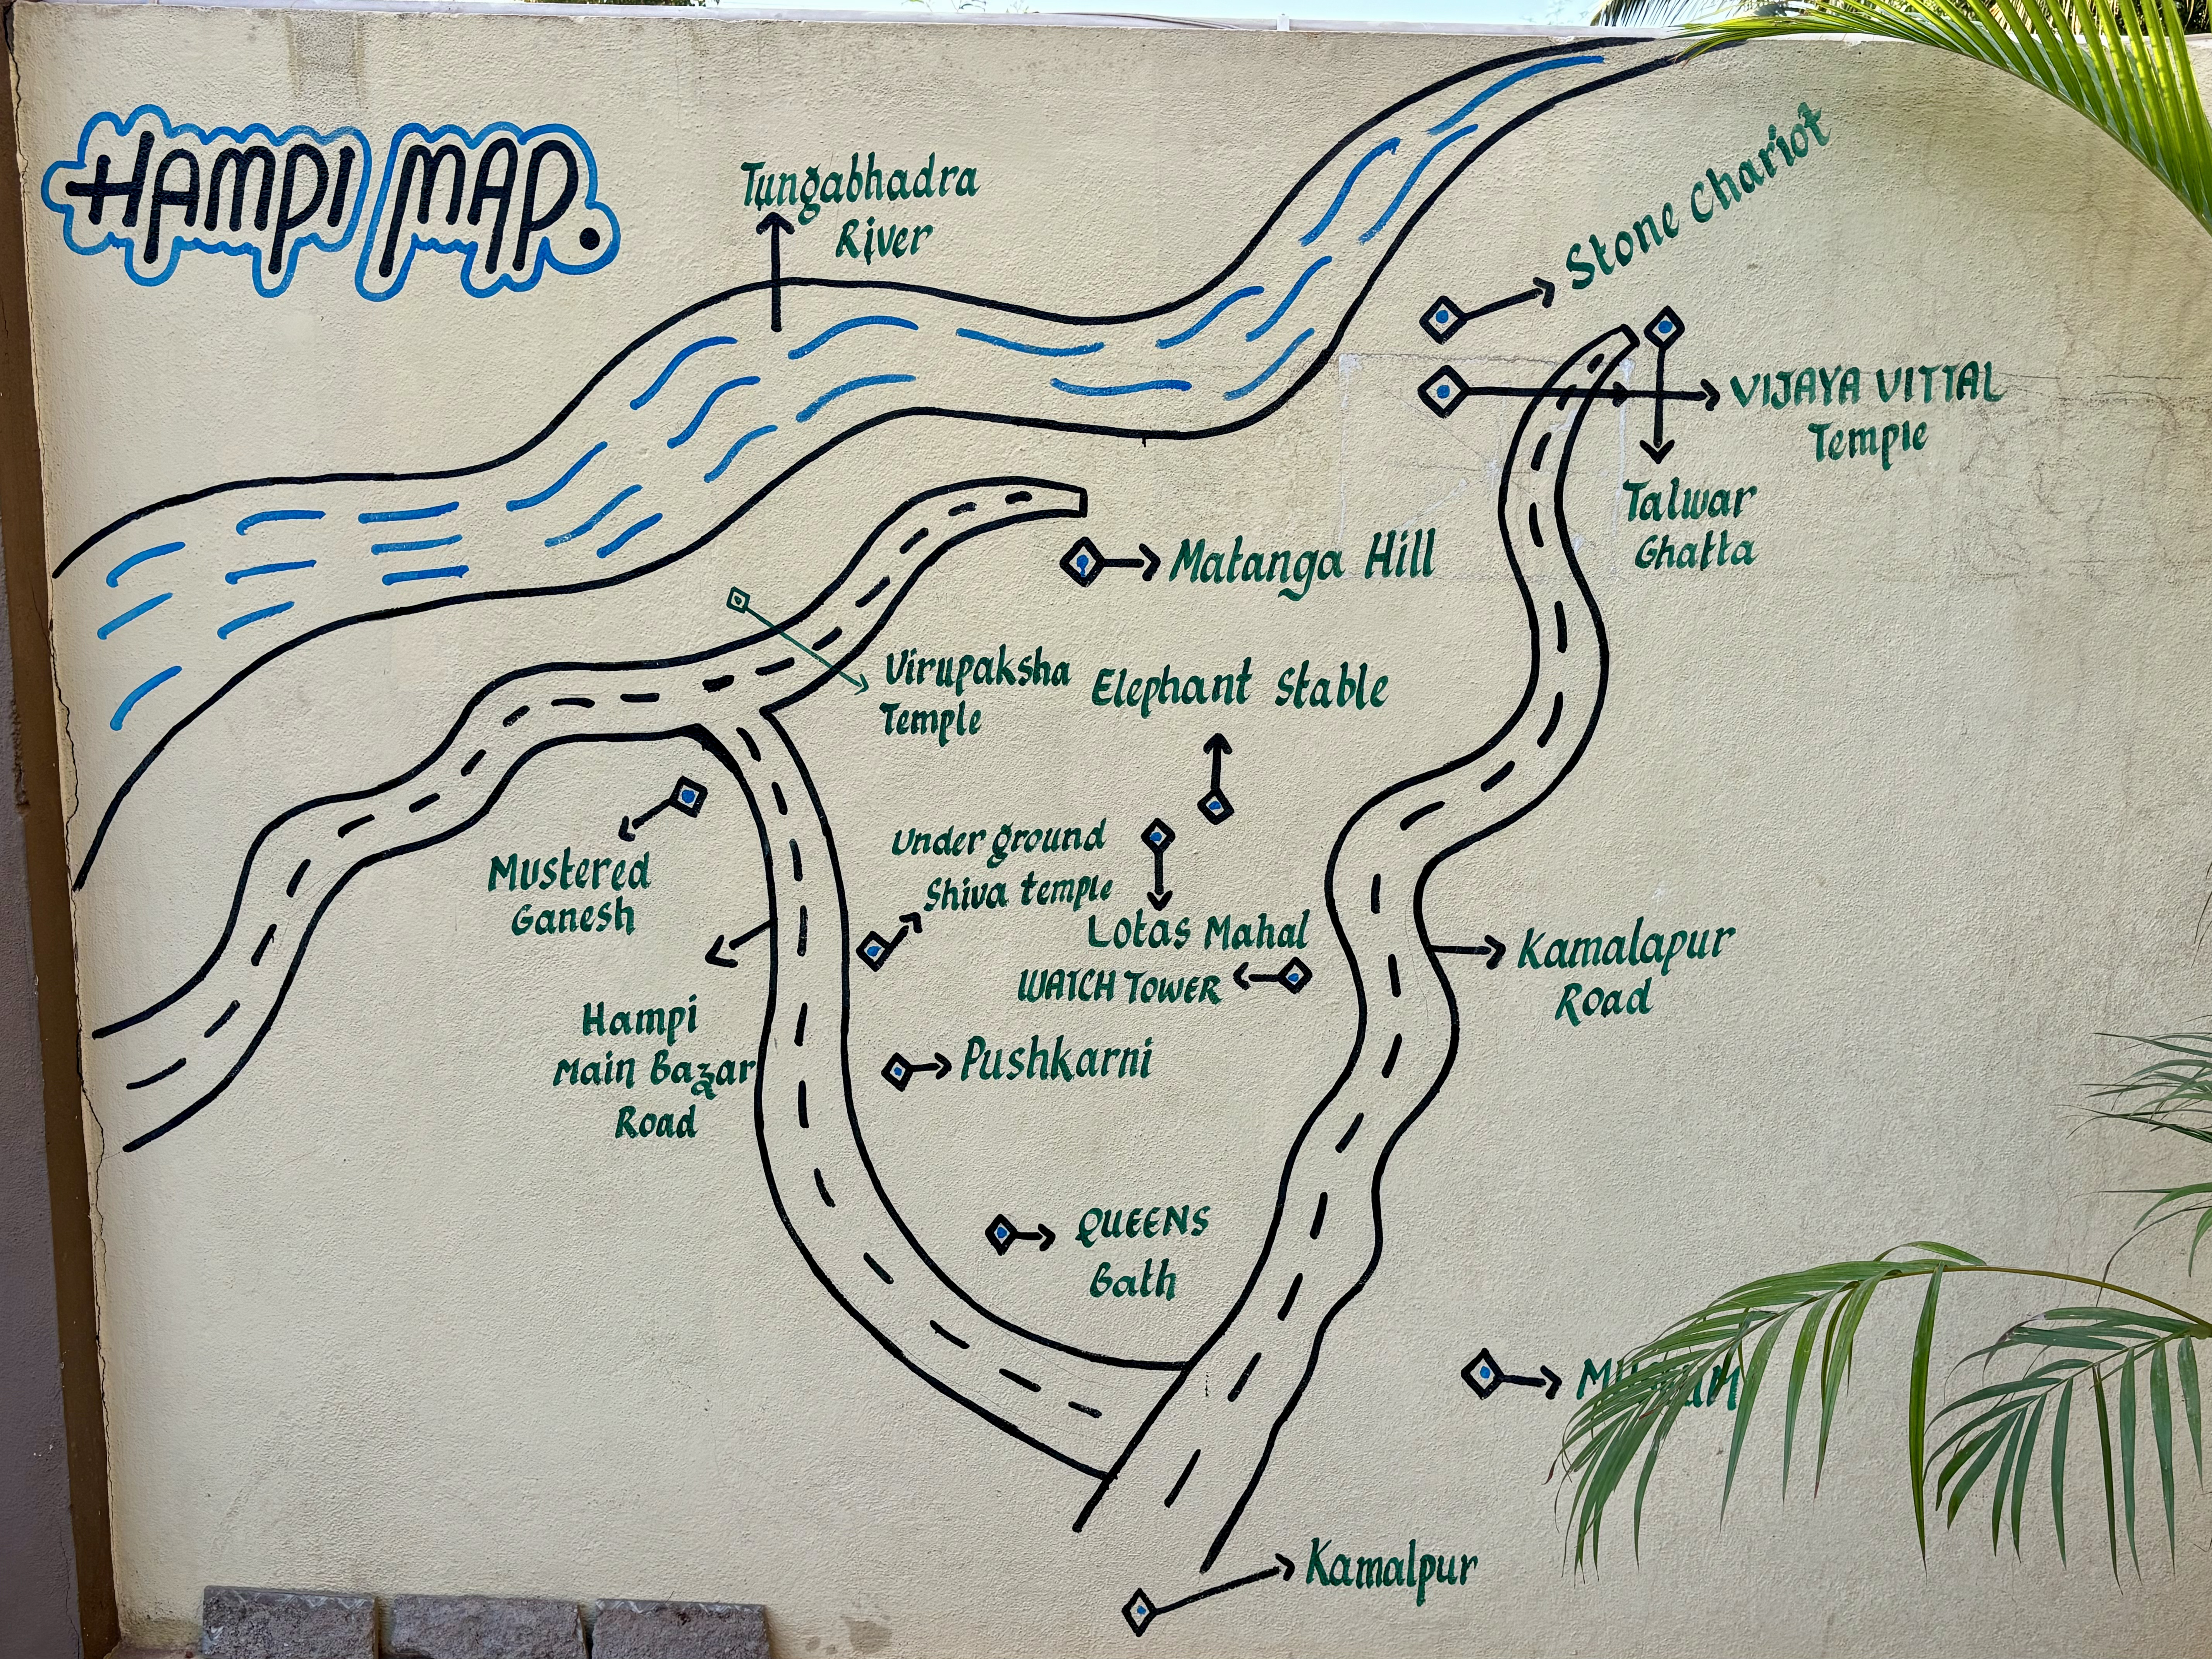 HAMPI MAP.
Tungabhadra
River
Stone Chariot
VIJAYA VITTAL
Temple
Talwar
Ghatta
Matanga Hill
Virupaksha
Temple
Elephant Stable
Mustered
Ganesh
Under ground
Shiva temple
Lotas Mahal
WATCH TOWER
Kamalapur
Road
Hampi
Main Bazar
Road
Pushkarni
QUEENS
Bath
Kamalpur